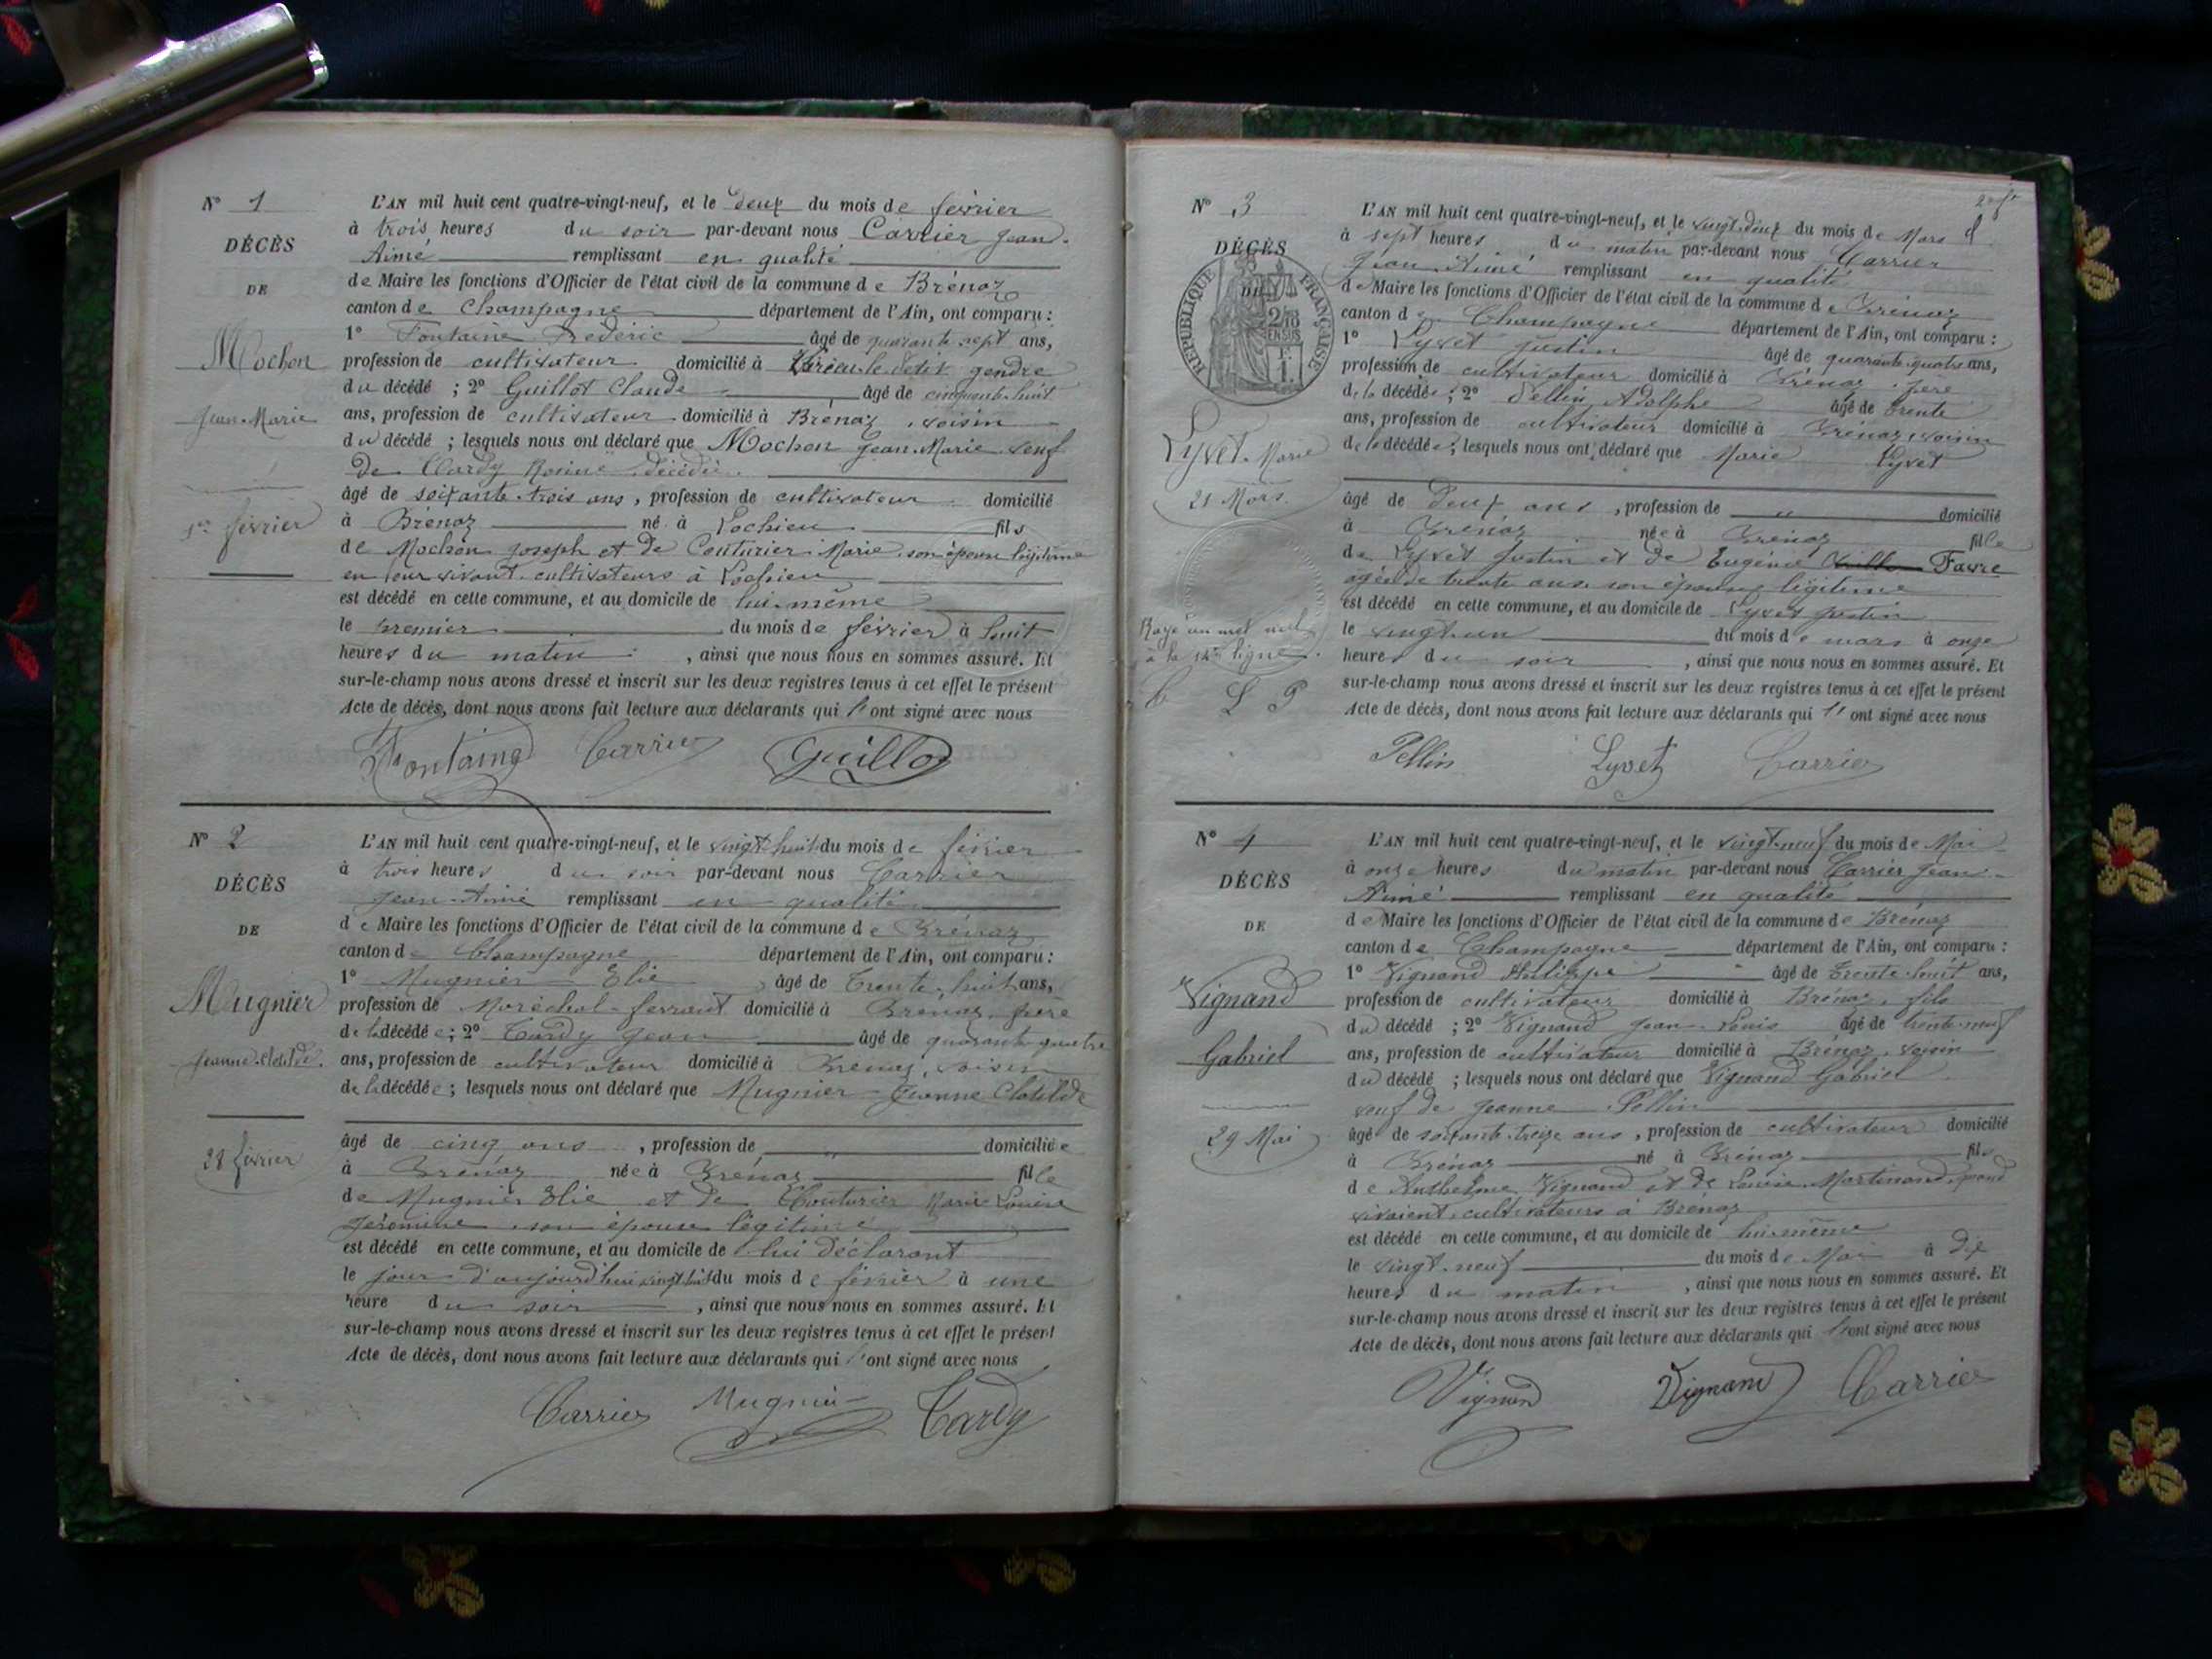 N° 1
DÉCÈS
DE
Mochon
Jean-Marie
1er février
L'AN mil huit cent quatre-vingt-neuf, et le deux du mois de février
à trois heures du soir par-devant nous Carrier Jean-
Aimé remplissant en qualité
de Maire les fonctions d'Officier de l'état civil de la commune de Brénaz
canton de Champagne département de l'Ain, ont comparu :
1° Fontaine Frédéric âgé de quarante sept ans,
profession de cultivateur domicilié à Virieu-le-Petit gendre
du décédé ; 2° Guillot Claude âgé de cinquante-huit
ans, profession de cultivateur domicilié à Brénaz, voisin
du décédé ; lesquels nous ont déclaré que Mochon Jean-Marie veuf
de Cardy décédée
âgé de soixante-trois ans, profession de cultivateur domicilié
à Brénaz né à Lochieu fils
de Mochon Joseph et de Couturier Marie son épouse légitime
en leur vivant cultivateurs à Lochieu
est décédé en cette commune, et au domicile de lui-même
le premier du mois de février à huit
heures du matin, ainsi que nous nous en sommes assuré. Et
sur-le-champ nous avons dressé et inscrit sur les deux registres tenus à cet effet le présent
Acte de décès, dont nous avons fait lecture aux déclarants qui l'ont signé avec nous
Fontaine Carrier Guillot
N° 2
DÉCÈS
DE
Mugnier
Jeanne-Clotilde
28 février
L'AN mil huit cent quatre-vingt-neuf, et le vingt huit du mois de février
à trois heures du soir par-devant nous Carrier
Jean-Aimé remplissant en qualité
de Maire les fonctions d'Officier de l'état civil de la commune de Brénaz
canton de Champagne département de l'Ain, ont comparu :
1° Mugnier Elie âgé de trente-huit ans,
profession de Maréchal-ferrant domicilié à Brénaz, père
de la décédée ; 2° Cardy Jean âgé de quarante quatre
ans, profession de cultivateur domicilié à Brénaz, voisin
de la décédée ; lesquels nous ont déclaré que Mugnier Jeanne Clotilde
âgé de cinq ans, profession de " domiciliée
à Brénaz née à Brénaz fille
de Mugnier Elie et de Couturier Marie Louise
son épouse légitime
est décédé en cette commune, et au domicile de lui déclarant
le jour d'aujourd'hui vingt huit du mois de février à une
heure du soir, ainsi que nous nous en sommes assuré. Et
sur-le-champ nous avons dressé et inscrit sur les deux registres tenus à cet effet le présent
Acte de décès, dont nous avons fait lecture aux déclarants qui l'ont signé avec nous
Carrier Mugnier Cardy
N° 3
DÉCÈS
DE
RÉPUBLIQUE FRANÇAISE
Lyvet Marie
21 Mars
Rayé un mot nul
à la 14me ligne.
C L P
L'AN mil huit cent quatre-vingt-neuf, et le vingt-deux du mois de Mars
à sept heures du matin par-devant nous Carrier
Jean Aimé remplissant en qualité
de Maire les fonctions d'Officier de l'état civil de la commune de Brénaz
canton de Champagne département de l'Ain, ont comparu :
1° Lyvet Justin âgé de quarante-quatre ans,
profession de cultivateur domicilié à Brénaz, père
de la décédée ; 2° Pellin Adolphe âgé de trente
ans, profession de cultivateur domicilié à Brénaz, voisin
de la décédée ; lesquels nous ont déclaré que Marie Lyvet
âgé de deux ans, profession de " domicilié
à Brénaz née à Brénaz fille
de Lyvet Justin et de Eugénie Favre
âgée de trente ans, son épouse légitime
est décédé en cette commune, et au domicile de Lyvet Justin
le vingt-un du mois de mars à onze
heures du soir, ainsi que nous nous en sommes assuré. Et
sur-le-champ nous avons dressé et inscrit sur les deux registres tenus à cet effet le présent
Acte de décès, dont nous avons fait lecture aux déclarants qui l'ont signé avec nous
Pellin Lyvet Carrier
N° 4
DÉCÈS
DE
Vignand
Gabriel
29 Mai
L'AN mil huit cent quatre-vingt-neuf, et le vingt-neuf du mois de Mai
à onze heures du matin par-devant nous Carrier Jean-
Aimé remplissant en qualité
de Maire les fonctions d'Officier de l'état civil de la commune de Brénaz
canton de Champagne département de l'Ain, ont comparu :
1° Vignand Philippe âgé de trente-huit ans,
profession de cultivateur domicilié à Brénaz, fils
du décédé ; 2° Vignand Jean-Louis âgé de trente-neuf
ans, profession de cultivateur domicilié à Brénaz, voisin
du décédé ; lesquels nous ont déclaré que Vignand Gabriel
veuf de Jeanne Pellin
âgé de soixante-treize ans, profession de cultivateur domicilié
à Brénaz né à Brénaz fils
de Anthelme Vignand et de Louise Martinand, quand
vivaient, cultivateurs à Brénaz
est décédé en cette commune, et au domicile de lui-même
le vingt-neuf du mois de Mai à dix
heures du matin, ainsi que nous nous en sommes assuré. Et
sur-le-champ nous avons dressé et inscrit sur les deux registres tenus à cet effet le présent
Acte de décès, dont nous avons fait lecture aux déclarants qui l'ont signé avec nous
Vignand Vignand Carrier